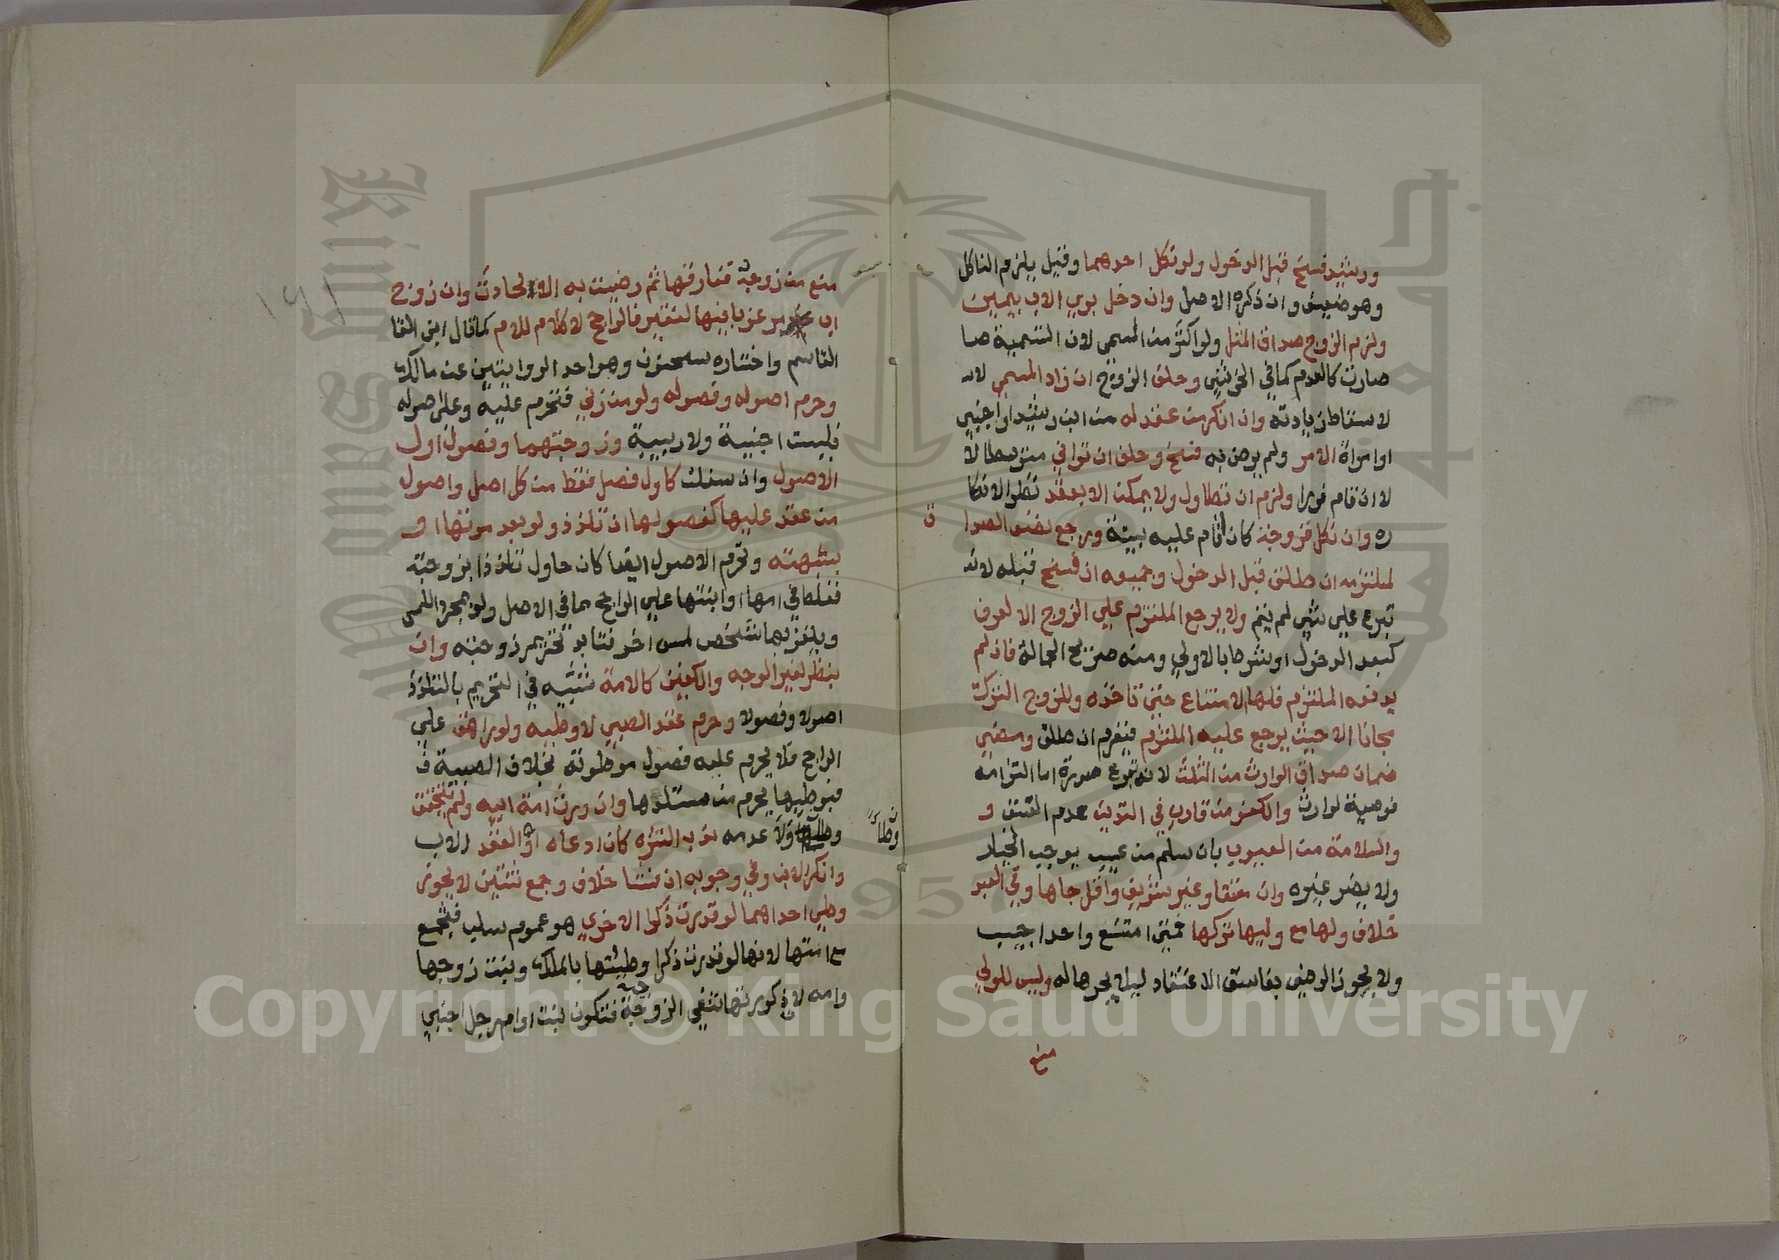 ورشيد فسخ قبل الدخول ولو نكل احدهما وقيل يلزم الناكل
وهو ضعيف وان ذكره الاصل وان دخل بري الاب بيمين
ولزم الزوج صداق المثل ولو اكثر من المسمى لان التسمية صا
صارت كالعدم كما في الخرشي وحلف الزوج ان زاد المسمى لا
لاسقاط زيادته وان انكر من عقد له من ابن رشيد او اجنبي
او امراة الامر ولم يرض به فسخ وحلف ان توانى متوسطا لا
لا ان قام فورا ولزم ان تطاول ولا يمكن الا بعقد نظرا لانكا
ره وان نكل فزوجة كان اقام عليه بينة ورجع نصف الصدا ق
لملتزمه ان طلق قبل الدخول وجميعه ان فسخ قبله لانه
تبرع على شي لم يتم ولا يرجع الملتزم على الزوج الا لعرف
كبعد الدخول او بشرط بالاولى ومنه صريح الحمالة فان لم
يدفعه الملتزم فلها الامتناع حتى تاخذه وللزوج الترك
مجانا الا حيث يرجع عليه الملتزم فيغرم ان طلق ومضى
ضمان صداق الوارث من الثلث لانه تبرع صورة اما التزامه
فوصية لوارث والكفؤ من قارب في التدين عدم الفسق و
والسلامة من العيوب بان سلم من عيب يوجب الخيار
ولا يضر غيره وان عتقا وغير شريف واقل جاها وفي العبد
خلاف ولها مع وليها تركها فمتى امتنع واحد اجيب
ولا يجوز الرضى بفاسق الاعتقاد ليلا يجرها له وليس للولي
منع
منع من زوجه ففارقها ثم رضيت به الا لحادث وان زوج
اب غريبا بابنتها لفقير فالراجح لا كلام للام كما قال ابن القا
القاسم واختاره سحنون وهو احد الروايتين عن مالك
وحرم اصوله وفصوله ولو من زنى فتحرم عليه وعلى اصوله
فليست اجنبية ولا ربيبة وزوجتهما وفصول اول
الاصول وان سفلت كاول فصل فقط من كل اصل واصول
من عقد عليها كفصولها ان تلذذ ولو بعد موتها او
بشبهته وتحرم الاصول ايضا كان حاول تلذذا بزوجته
فغلط في امها او ابنتها على الراجح مما في الاصل ولو بمجرد اللمس
ويلغز بها شخص لمس اخر فتابد تحريم زوجته وان
بنظر لغير الوجه والكفين كالامة شبيه في التحريم بالتلذذ
اصولا وفصولا وحرم عقد الصبي لا وطيه ولو راهق على
الراجح فلا يحرم عليه فصول موطوئة بخلاف الصبية ف
فبوطيها يحرم من ستلدها وان ورث امة ابيه ولم يتحقق
وطأ ولا عدمه ندب التنزه كان ادعاه او العقد الاب
وانكر الابن وفي وجوبه ان فشا خلاف وجمع ثنتين لا يجوز
وطي احداهما لو قدرت ذكرا الاخرى هو عموم سلب فيجمع
مع امتها لانها لو قدرت ذكرا وطيتها بالملك وبنت زوجها
وامه لان ذكوريتها تنفي الزوجية فتكون بنت او ام رجل اجنبي
وطأ
١٩١